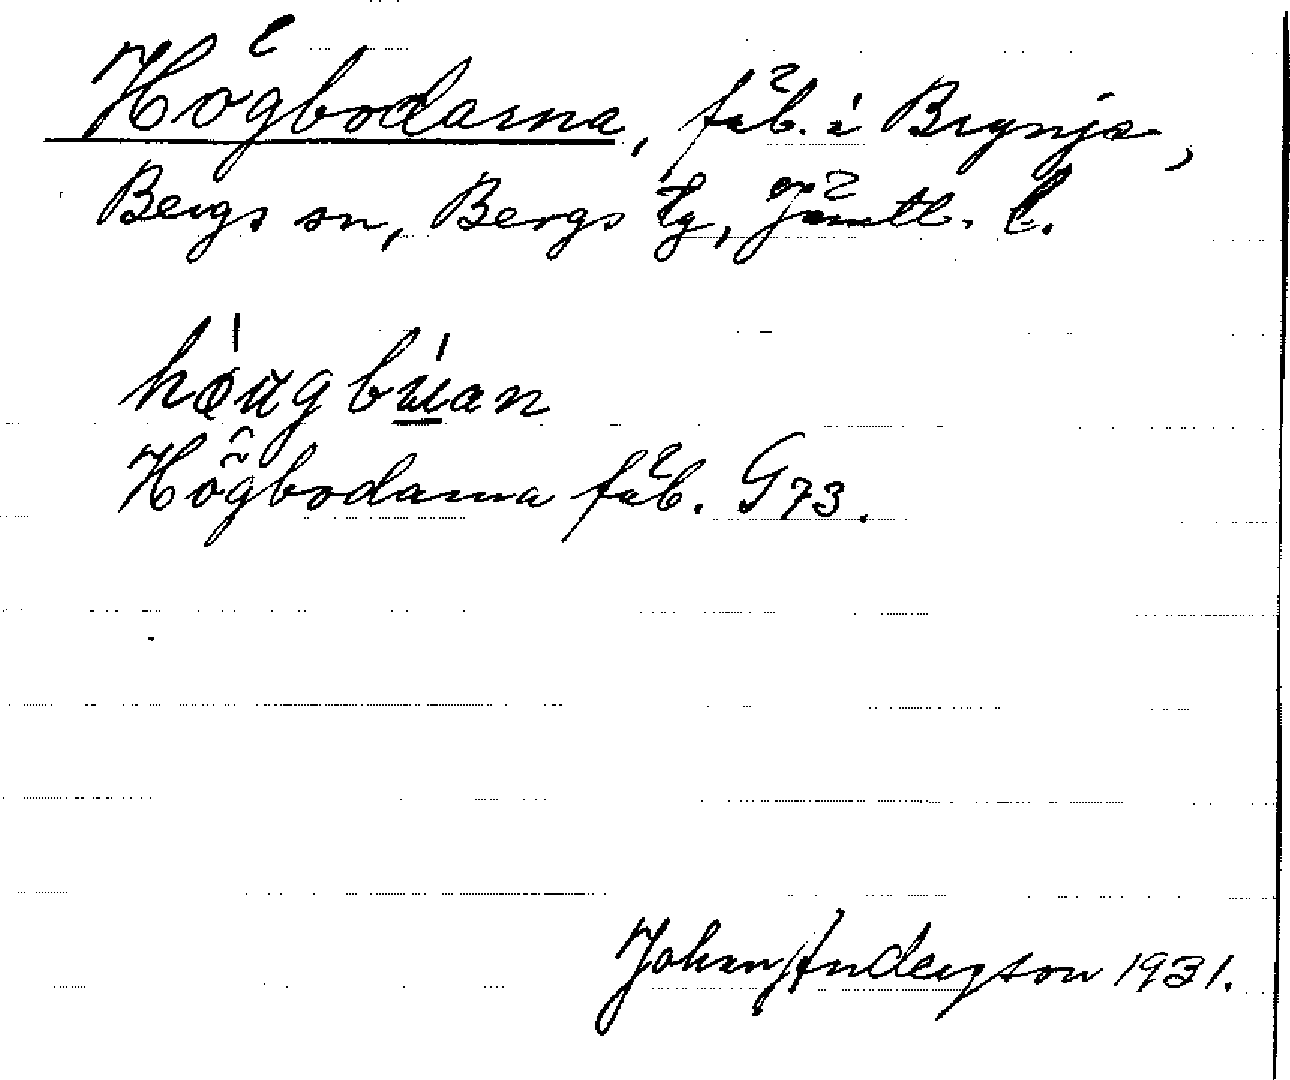 Högbodarna, fäb. i Brynje,
Bergs sn, Bergs tg, Jämtl. l.
högbúan
Högbodarna fäb. G73.
Johan Anderson 1931.